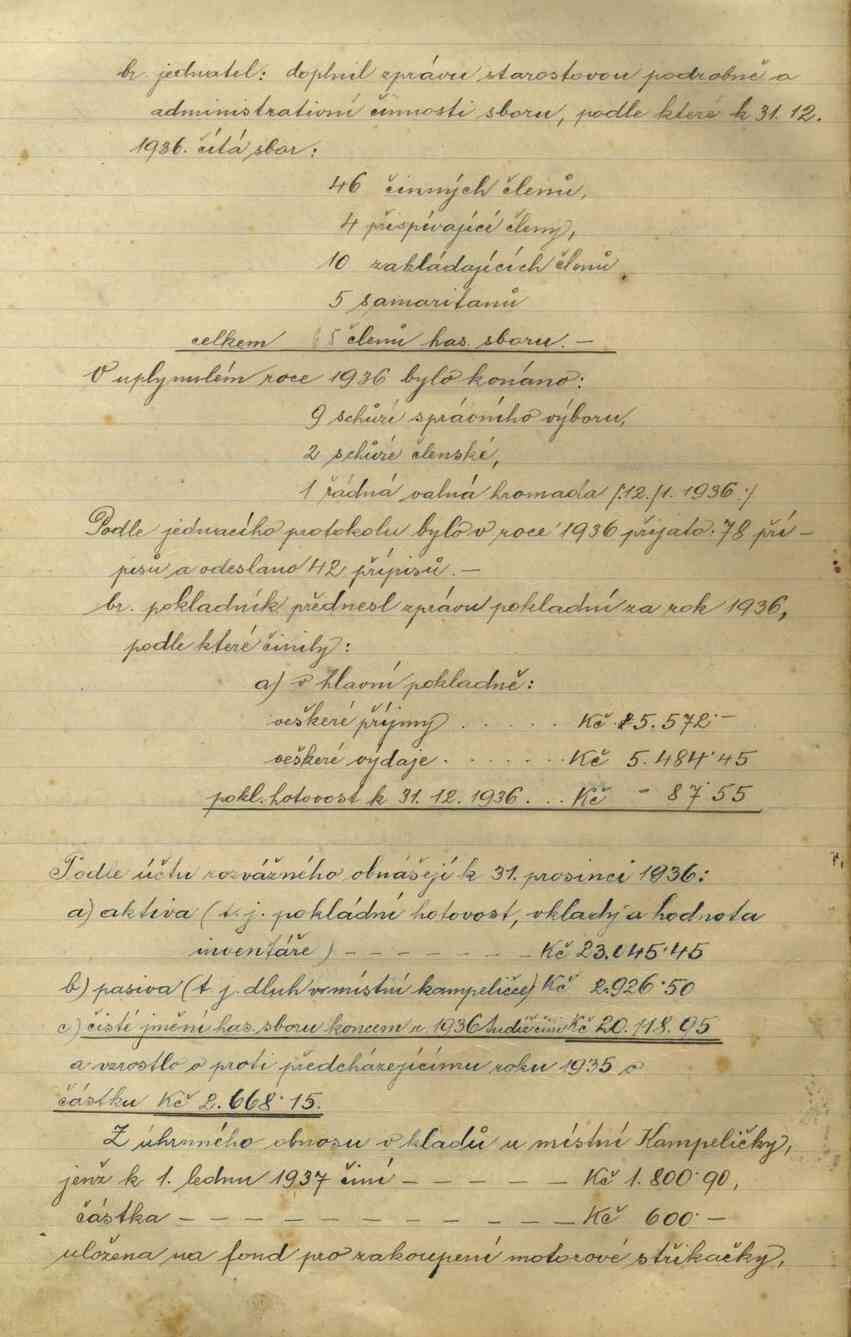 br. jednatel: doplnil zprávu starostovou podrobně o
administrativní činnosti sboru, podle které k 31. 12.
1936. čítá sbor:
46 činných členů,
4 přispívající členy,
10 zakládajících členů
5 samaritanů
celkem 65 členů has. sboru. –
V uplynulém roce 1936 bylo konáno:
9 schůzí správního výboru,
2 schůze členské,
1 řádná valná hromada /:12./1. 1936:/
Podle jednacího protokolu bylo v roce 1936 přijato 78 pří-
pisů a odesláno 42 přípisů. –
br. pokladník přednesl zprávu pokladní za rok 1936,
podle které činily:
a) v hlavní pokladně:
veškeré příjmy . . . . . . Kč 5.572·–
veškeré výdaje . . . . . . . Kč 5.484·45
pokl. hotovost k 31. 12. 1936 . . . Kč – 87·55
Podle účtu rozvážného obnášejí k 31. prosinci 1936:
a) aktiva (t. j. pokládní hotovost, vklady a hodnota
inventáře) – – – – – – – Kč 23.045·45
b) pasiva (t. j. dluh v místní kampeličce) Kč 2.926·50
c) čisté jmění has. sboru koncem r. 1936 tudíž činí Kč 20.118.95
a vzrostlo o proti předcházejícímu roku 1935 o
částku Kč 2.668·15.
Z úhrnného obnosu vkladů u místní Kampeličky,
jenž k 1. lednu 1937 činí – – – – – Kč 1.800·90,
částka – – – – – – – – – – – – Kč 600·–
uložena na fond pro zakoupení motorové stříkačky,